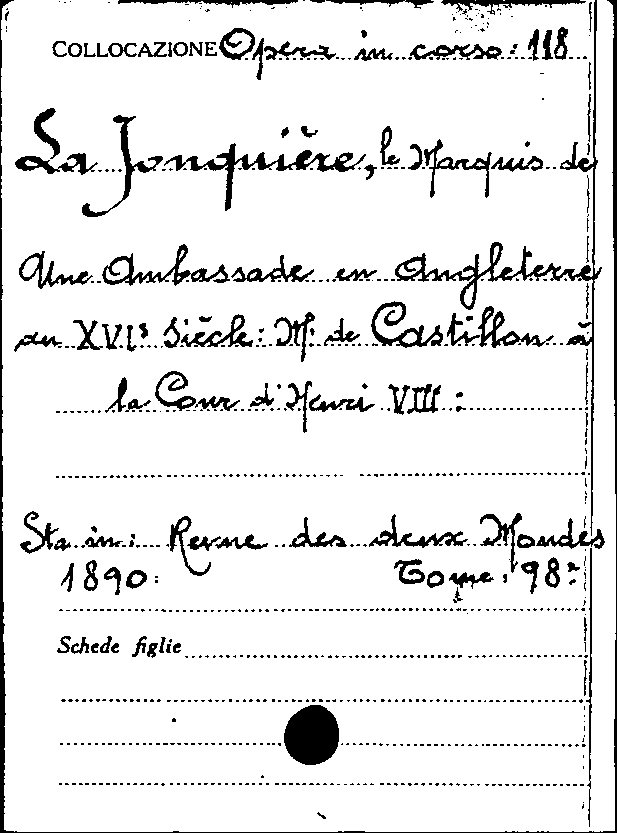 COLLOCAZIONE Opera in corso: 118
La Jonquière, le Marquis de
Une Ambassade en Angleterre
au XVIs Siècle: M. de Castillon à
la Cour d'Henri VIII:
Sta in: Revue des deux Mondes
1890. Tome 98º
Schede figlie